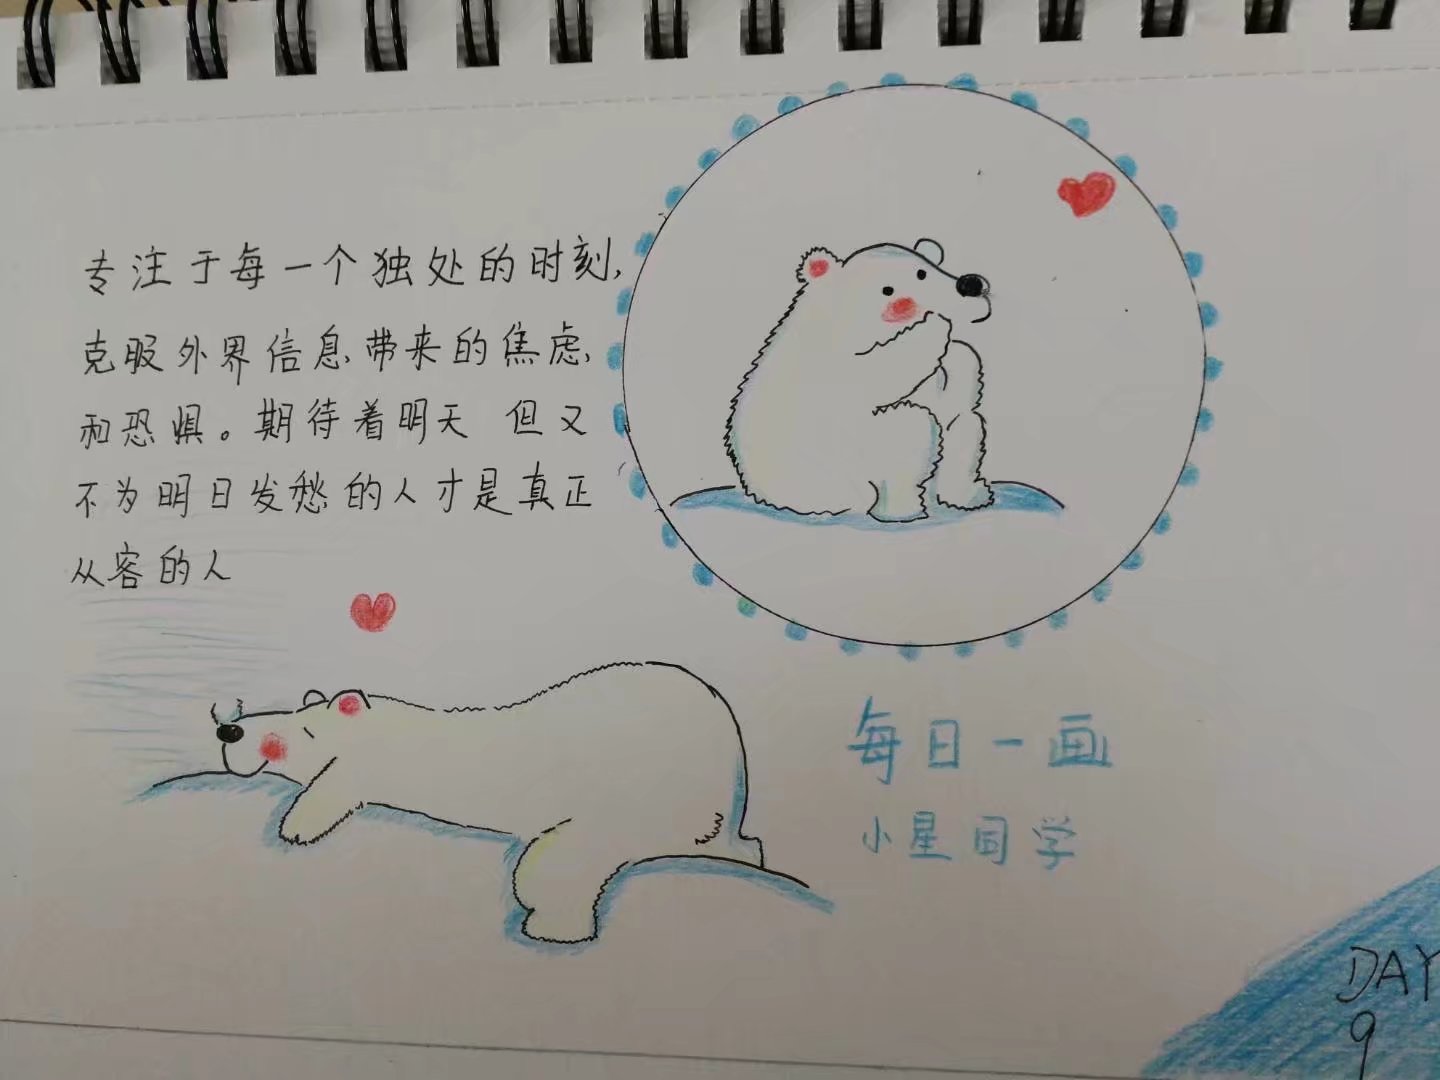 专注于每一个独处的时刻，
克服外界信息带来的焦虑
和恐惧。期待着明天 但又
不为明日发愁的人才是真正
从容的人
每日一画
小星同学
DAY
9